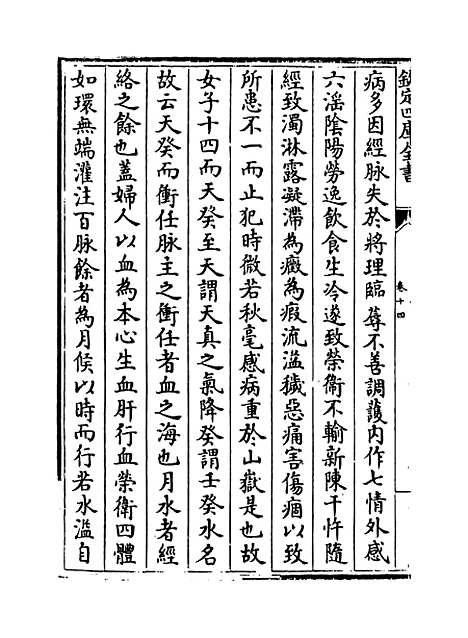 欽定四庫全書
卷十四
病多因經脉失於將理臨蓐不善調護内作七情外感
六淫陰陽勞逸飲食生冷遂致榮衞不輸新陳干忤隨
經致濁淋露凝滯為癥為瘕流溢穢惡痛害傷痼以致
所患不一而止犯時微若秋毫感病重於山嶽是也故
女子十四而天癸至天謂天真之氣降癸謂壬癸水名
故云天癸而衝任脉主之衝任者血之海也月水者經
絡之餘也蓋婦人以血為本心生血肝行血榮衛四體
如環無端灌注百脉餘者為月候以時而行若水溢自